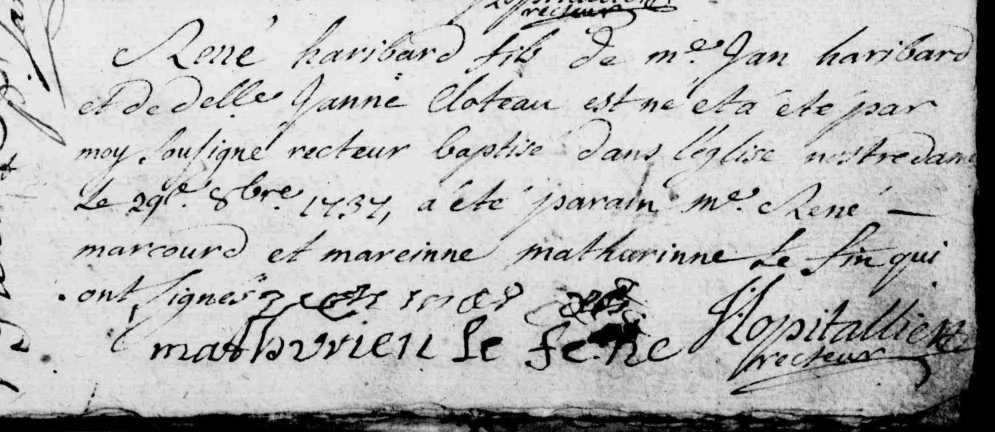 recteur
René haribard fils de me. Jan haribard
et de delle Janne Cloteau est né et a été par
moy sousigné recteur baptisé dans l'église nostre dame
Le 29e. 8bre. 1737, a été parain me. René —
marcourd et mareinne mathurinne Le fin qui
ont signes
mathurien Le fene hopitallien
recteur